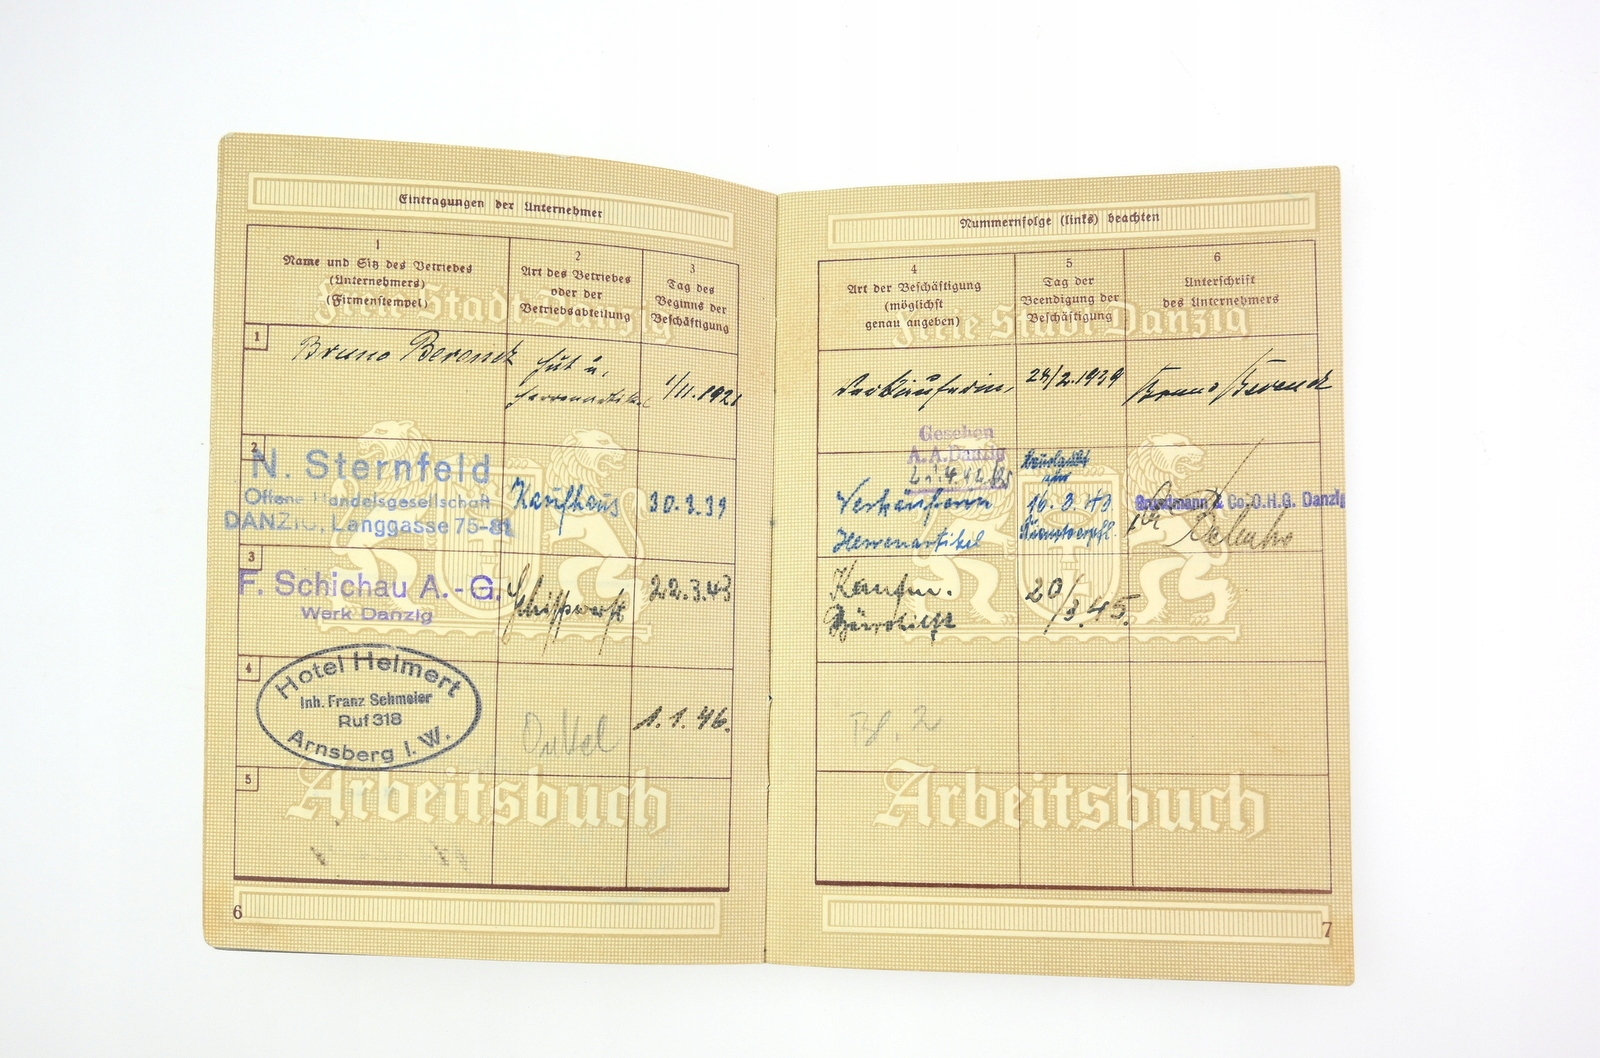 Eintragungen der Unternehmer
1
Name und Sitz des Betriebes
(Unternehmers)
(Firmenstempel)
2
Art des Betriebes
oder der
Betriebsabteilung
3
Tag des
Beginns der
Beschäftigung
Freie Stadt Danzig
1
Bruno Berendt
Hut u.
Herrenartikel
1/11.1921
2
N. Sternfeld
Offene Handelsgesellschaft
DANZIG, Langgasse 75-81
Kaufhaus
30.3.39
3
F. Schichau A.-G.
Werk Danzig
Schiffswerft
22.3.43
4
Hotel Helmert
Inh. Franz Sehmeier
Ruf 318
Arnsberg i. W.
Onkel
1.1.46.
5
Arbeitsbuch
6
Nummernfolge (links) beachten
4
Art der Beschäftigung
(möglichst
genau angeben)
5
Tag der
Beendigung der
Beschäftigung
6
Unterschrift
des Unternehmers
Freie Stadt Danzig
Verkäuferin,
28/2.1939
Bruno Berendt
Gesehen
A.A. Danzig
Verkäuferin
Herrenartikel
16.3.43
& Co. O.H.G. Danzig
Kaufm.
Bürohilfe
20/3.45.
Bl. 2
Arbeitsbuch
7